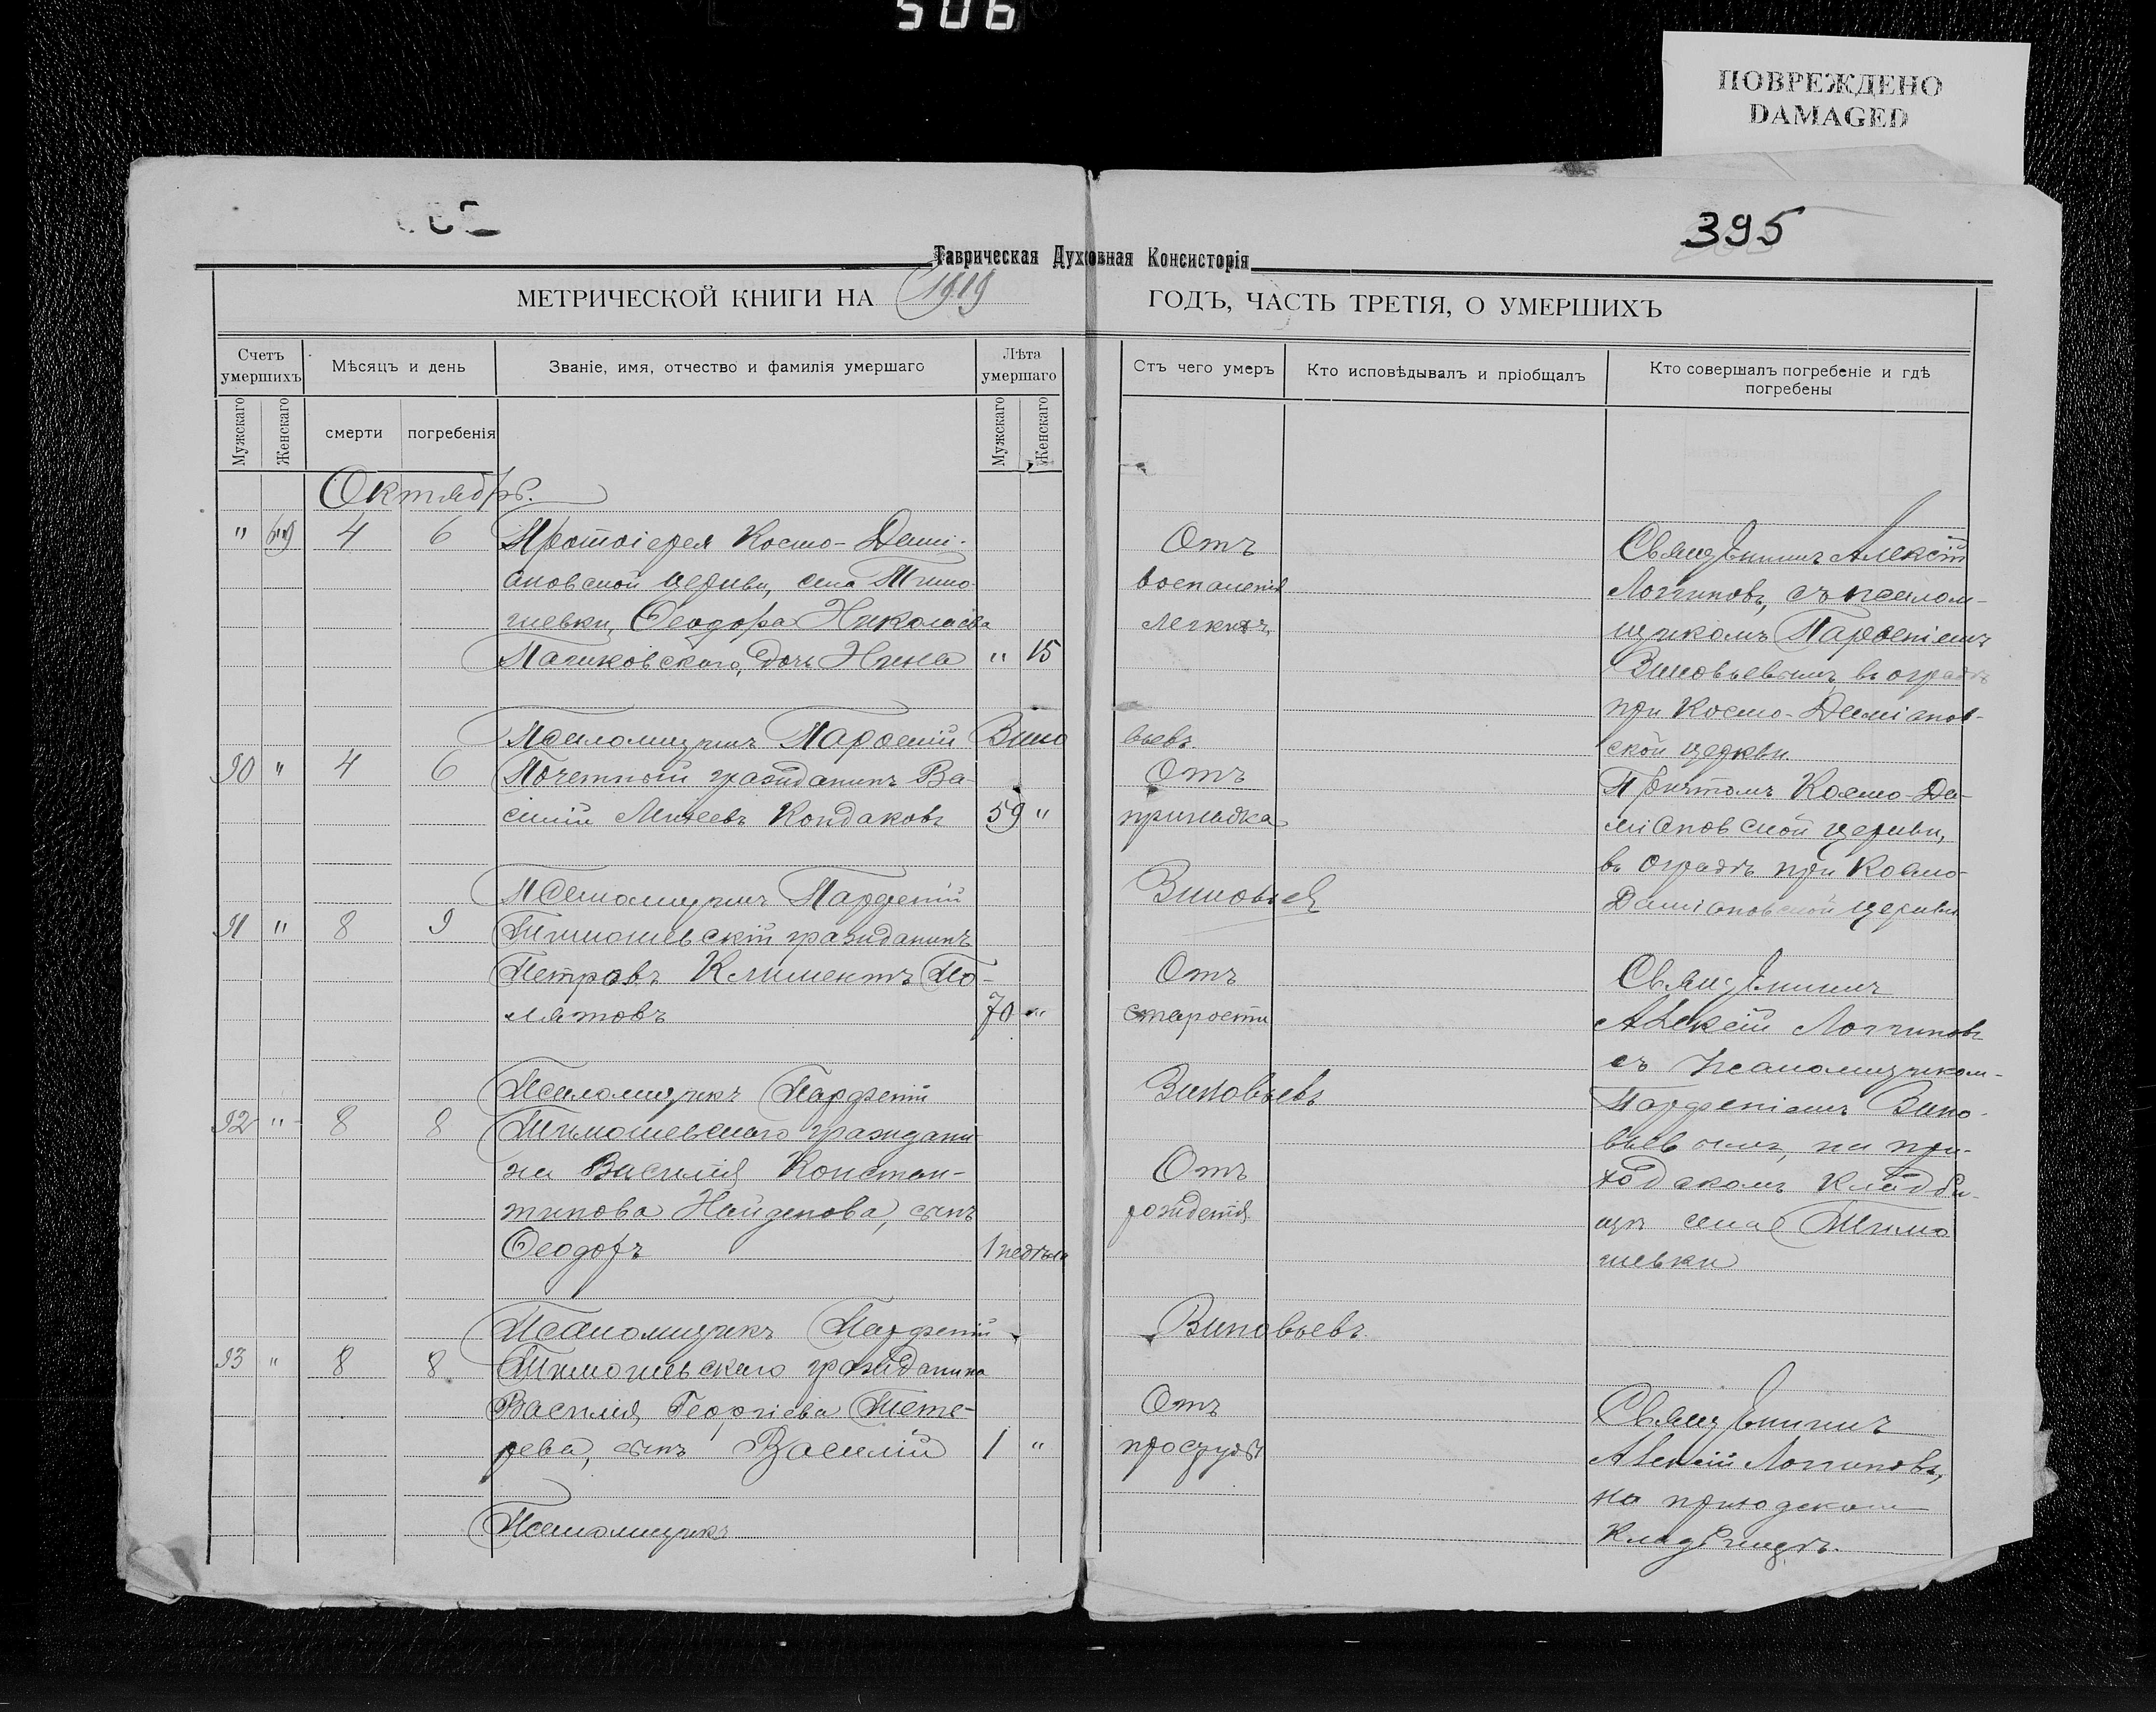 506
ПОВРЕЖДЕНО
DAMAGED
395
Таврическая Духовная Консисторія
МЕТРИЧЕСКОЙ КНИГИ НА 1919 ГОДЪ, ЧАСТЬ ТРЕТІЯ, О УМЕРШИХЪ
Счетъ умершихъ
Мѣсяцъ и день
Званіе, имя, отчество и фамилія умершаго
Лѣта умершаго
Отъ чего умеръ
Кто исповѣдывалъ и пріобщалъ
Кто совершалъ погребеніе и гдѣ погребены
Мужскаго
Женскаго
смерти
погребенія
Мужскаго
Женскаго
Октябрь.
" 4 6 Протоіерея Космо-Дамі-
ановской церкви, села Тимо-
шевки, Ѳеодора Николаева
дочь Нина " 15
Отъ
воспаленія
легкихъ
Священникъ Алексій
Логгиновъ, съ псалом-
щикомъ Парѳеніемъ
Зиновьевымъ, въ оградѣ
при Космо-Даміанов-
ской церкви.
Псаломщикъ Парѳеній Зино
вьевъ.
90 " 4 6 Почетный гражданинъ Ва-
силій Кондаковъ 59 "
Отъ
припадка
Причтомъ Космо-Да-
міановской церкви,
въ оградѣ при Космо-
Даміановской церкви
Псаломщикъ Парфеній
Зиновьев
91 " 8 9 Тимошевскій гражданинъ
Петровъ Климентъ По-
лятовъ 70 "
Отъ
старости
Священникъ
Алексій Логгиновъ
съ псаломщиком-
Парфеніемъ Зино-
вьевымъ, на при-
ходскомъ кладби-
щѣ села Тимо
шевки
Псаломщикъ Парфеній
Зиновьевъ
92 " 8 8 Тимошевскаго граждани-
на Василія Констан-
тинова Найденова, сынъ
Ѳеодоръ 1 недѣля
Отъ
рожденія
Псаломщикъ Парфеній
Зиновьевъ.
93 " 8 8 Тимошевскаго гражданина
Василія Георгіева Тете-
рева, сынъ Василій 1 "
Отъ
простуды
Священникъ
Алексій Логгиновъ,
на приходском
кладбищѣ.
Псаломщикъ